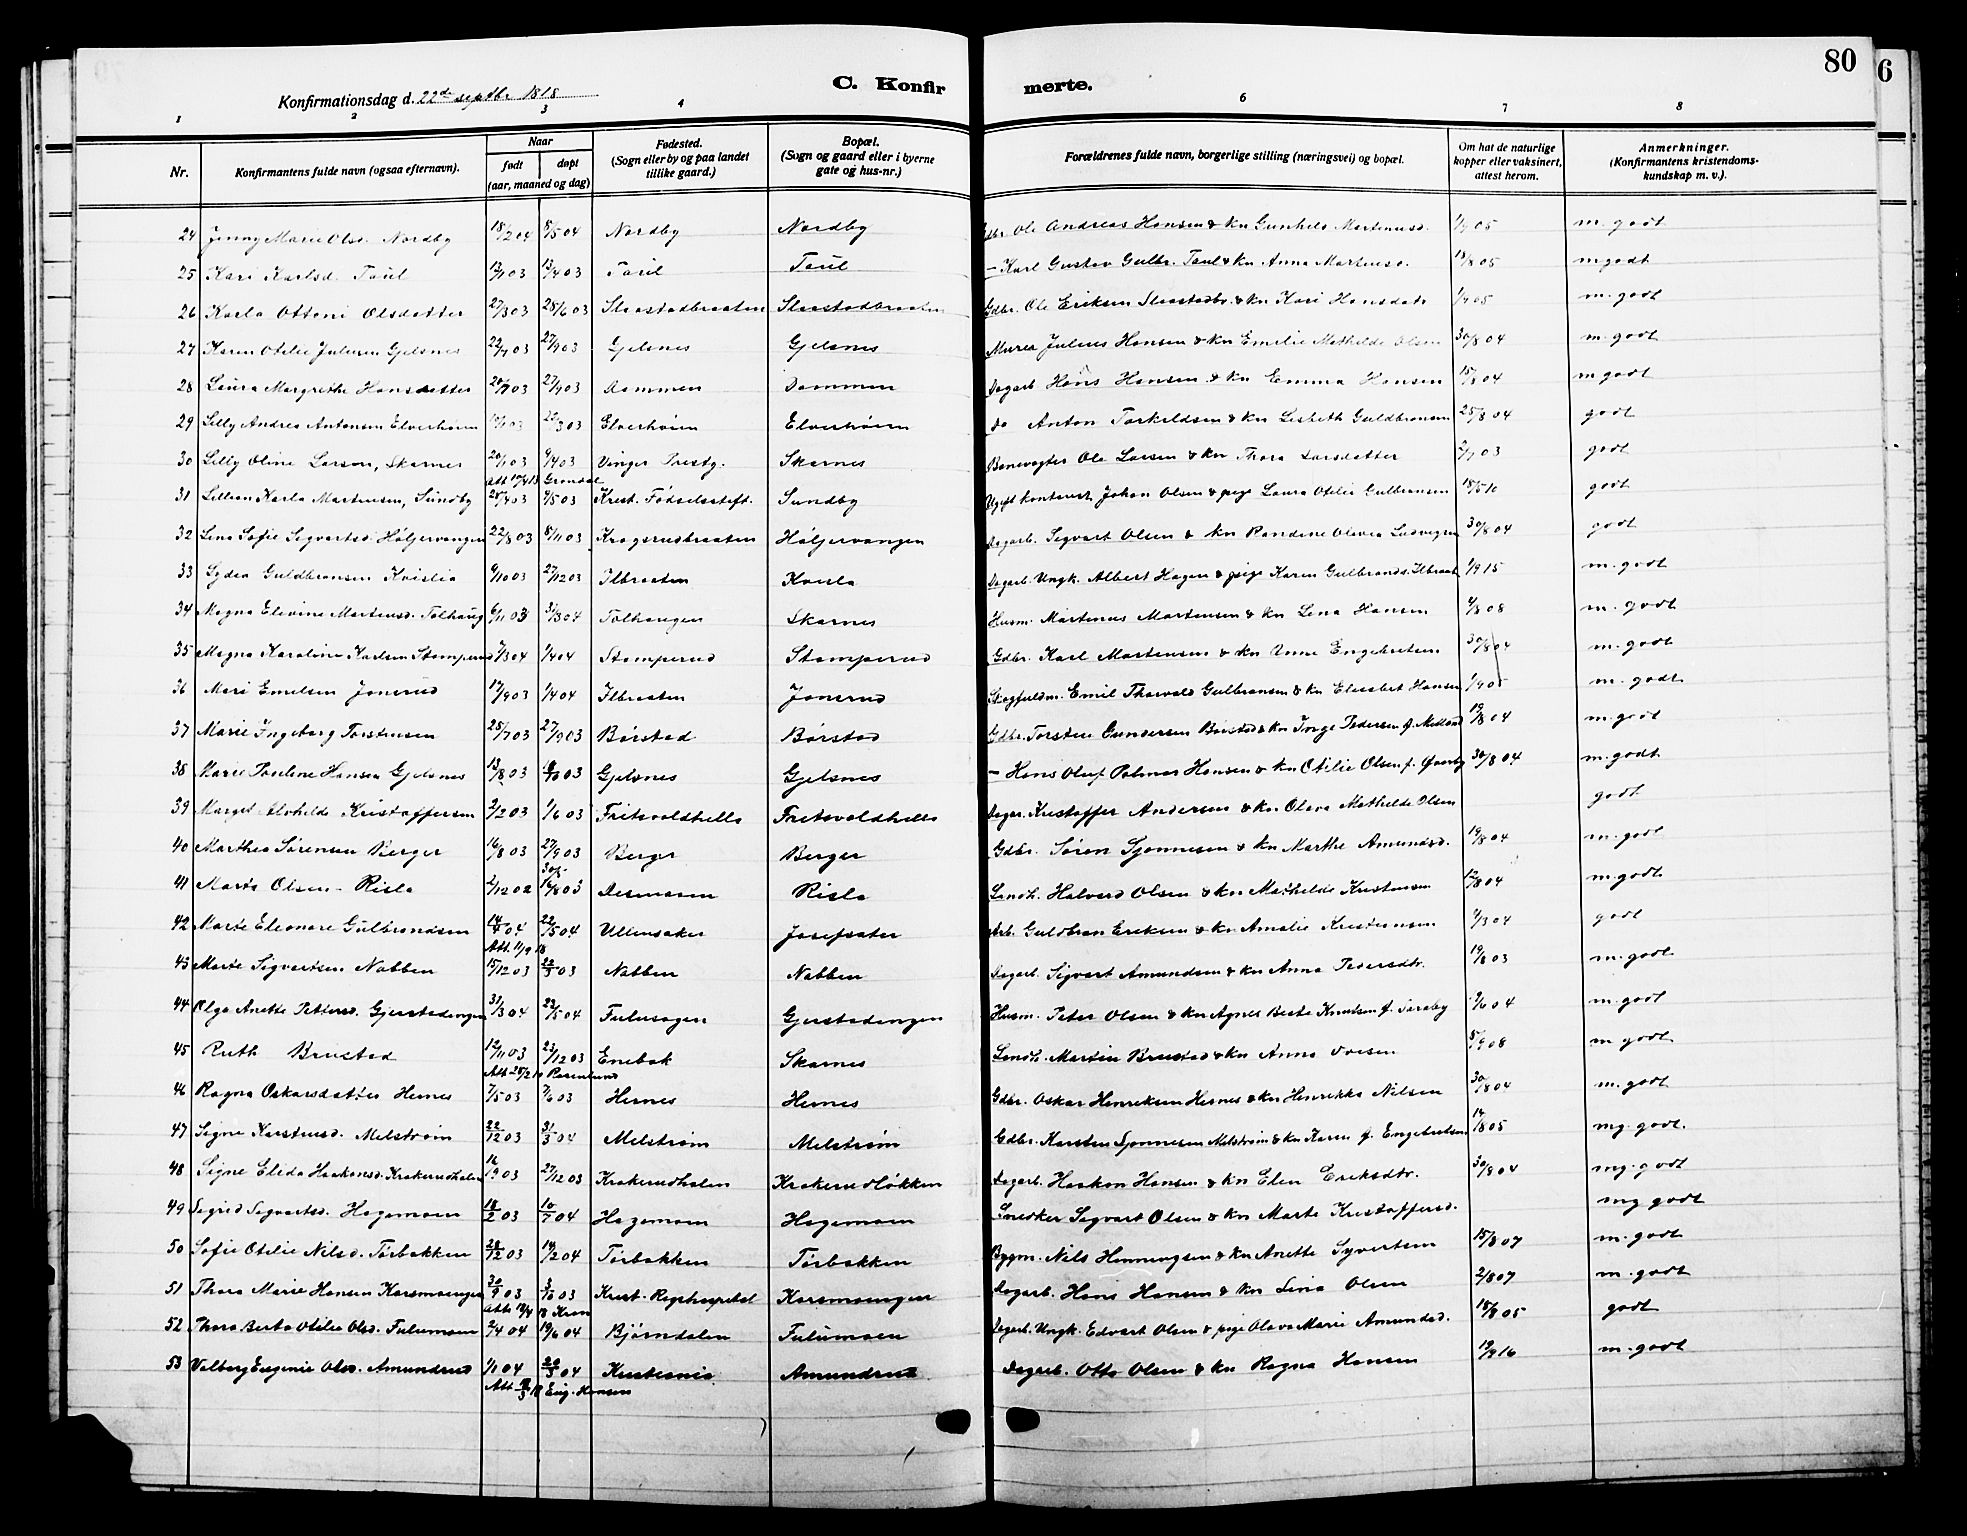 80
6
C. Konfirmerte.
Konfirmationsdag d. 22de septbr 1818
1 2 3 4 5 6 7 8
Nr. Konfirmantens fulde navn (ogsaa efternavn). Naar født døpt (aar, maaned og dag) Fødested. (Sogn eller by og paa landet tillike gaard.) Bopæl. (Sogn og gaard eller i byerne gate og hus-nr.) Forældrenes fulde navn, borgerlige stilling (næringsvei) og bopæl. Om hat de naturlige kopper eller vaksinert, attest herom. Anmerkninger. (Konfirmantens kristendomskundskap m. v.).
24 Jenny Marie Olsd. Nordby 18/2 04 8/5 04 Nordby Nordby Gdbr. Ole Andreas Hansen & kn Gunhild Martinusd. 1/9 05 m. godt
25 Kari Karlsd. Taul 03 13/4 03 Taul Taul — Karl Gustav Gulbr. Taul & kn Anna Martinsd. 15/8 05 m godt
26 Karla Ottoni Olsdatter 27/3 03 28/6 03 Slaastadbraaten Slaastadbraaten Gdbr. Ole Eriksen Slaastadbr. & kn Kari Hansdatr 1/9 05 m. godt
27 Karen Otilie Juliusen Gjelsnes 22/7 03 27/9 03 Gjelsnes Gjelsnes Murer Julius Hansen & kn Emilie Mathilde Olsen 30/8 04 m. godt
28 Laura Margrethe Hansdatter 20/7 03 27/9 03 Dammen Dammen Dagarb. Hans Hansen & kn Emma Hansen 15/8 04 m godt
29 Lilly Andrea Antonsen Elverhøien 03 22/3 03 Elverhøien Elverhøien do Anton Torkildsen & kn Lisbeth Guldbransen 25/8 04 godt
30 Lilly Oline Larsen, Skarnes 20/1 03 9/4 03 Vinger Prestg. Skarnes Banevogter Ole Larsen & kn Thora Larsdatter 2/7 03 godt
31 Lillian Karla Martinsen, Sundby 28/4 03 7/5 03 Krist. Fødselsstift. Sundby Ugift kontorist Johan Olsen & pige Laura Otilie Gulbransen 18/5 10 godt
32 Lina Sofie Sigvartsd. Håljervangen 22/8 03 8/11 03 Kragsrudbraaten Håljervangen Dagarb. Sigvart Olsen & kn Randine Olavia Ludvigsen 30/8 04 godt
33 Lydia Guldbransen Kvisla 9/10 03 27/12 03 Ilbraaten Kvisla Dagarb. Ungk. Albert Hagen & pige Karen Gulbrands. Ilbraat. 1/9 15 m. godt
34 Magna Elevine Martinsd. Tolhaug 6/11 03 3/3 04 Tolhaugen Skarnes Husm. Martinus Martinsen & kn Lina Hansen 4/8 08 m. godt
35 Magna Karoline Karlsen Stomperud 7/3 04 1/4 04 Stomperud Stomperud Gdbr. Karl Martinsen & kn Anne Engebretsen 30/8 04 m. godt
36 Mari Emilsen Jonsrud 17/9 03 1/4 04 Ilbraaten Jonsrud Skogfuldm. Emil Thorvald Gulbransen & kn Elisabet Hansen 1/9 05 m. godt
37 Marie Ingeborg Torstensen 25/7 03 27/9 03 Børstad Børstad Gdbr. Torsten Gundersen Børstad & kn Inge Pedersen f. Metland 19/8 04 m. godt
38 Marie Pauline Hansen Gjelsnes 13/8 03 18/10 03 Gjelsnes Gjelsnes — Hans Oluf Palmar Hansen & kn Otilie Olsen f. Øverby 30/8 04 m. godt
39 Margit Alvhilde Kristoffersen 2/2 03 1/6 03 Fritsvoldhella Fritsvoldhella Dagar. Kristoffer Andersen & kn Olava Mathilde Olsen godt
40 Marthea Sørensen Berger 16/8 03 27/9 03 Berger Berger Gdbr. Søren Sjønnesen & kn Marthe Amundsd. 19/8 04 m. godt
41 Marta Olsen - Risla 2/12 02 16/8 03 Desmoen Risla Landh. Halvard Olsen & kn Mathilde Kristensen 12/8 04 m. godt
42 Marte Eleonore Gulbrandsen 14/4 04 22/5 04 Ullensaker Josefsæter Arb. Guldbran Eriksen & kn Amalie Kristiansen 4/3 04 godt
43 Marte Sigvartsen Nabben Att. 11/9 18 15/12 03 22/3 03 Nabben Nabben Dagarb. Sigvart Amundsen & kn Anna Pedersdtr. 19/8 03 m. godt
44 Olga Anette Pettersd. Gjerstadengen 31/3 04 22/5 04 Fulusagen Gjerstadengen Husm. Peter Olsen & kn Agnes Beate Knudsen f. Toreby 9/6 04 m. godt
45 Ruth Brustad 12/11 03 23/12 03 Enebak Skarnes Landh. Martin Brustad & kn Anna 8/9 08 m godt
46 Ragna Oskarsdatter Hernes 7/5 03 7/6 03 Hernes Hernes Gdbr. Oskar Henriksen Hernes & kn Henrikka Nilsen 30/8 04 m. godt
47 Signe Karstensd. Melstrøm 22/12 03 31/3 04 Melstrøm Melstrøm Gdbr. Karsten Sjønnesen Melstrøm & kn Karen f. Engebretsen 14/8 05 mg. godt.
48 Signe Elida Haakonsd. Krakerudhalen 16/9 03 27/12 03 Krakerudhalen Krakerudløkken Dagarb. Haakon Hansen & kn Elen Eriksdtr. 30/8 04 mg. godt
49 Sigrid Sigvartsd. Hagemoen 18/2 03 10/7 04 Hagemoen Hagemoen Snedker Sigvart Olsen & kn Marte Kristoffersd. mg godt
50 Sofie Otilie Nilsd. Torbakken 28/12 03 14/2 04 Torbakken Torbakken Bygm. Nils Henningsen & kn Anette Syvertsen 15/8 07 m. godt
51 Thora Marie Hansen Karsmoengen 30/9 03 3/10 03 Krist. Rigshospital Karsmoengen Dagarb. Hans Hansen & kn Lina Olsen 2/8 07 m. godt
52 Thora Berta Otilie Olsd. Fulumoen 2/4 04 19/6 04 Bjørndalen Fulumoen Dagarb. Ungk. Edvart Olsen & pige Olava Marie Amundsd. 18/8 05 godt
53 Valborg Eugenie Olsd. Amundrud 1/1 04 22/3 04 Kristiania Amundrud Dagarb. Otto Olsen & kn Ragna Hansen 19/9 16 m. godt
Eug. Hansen